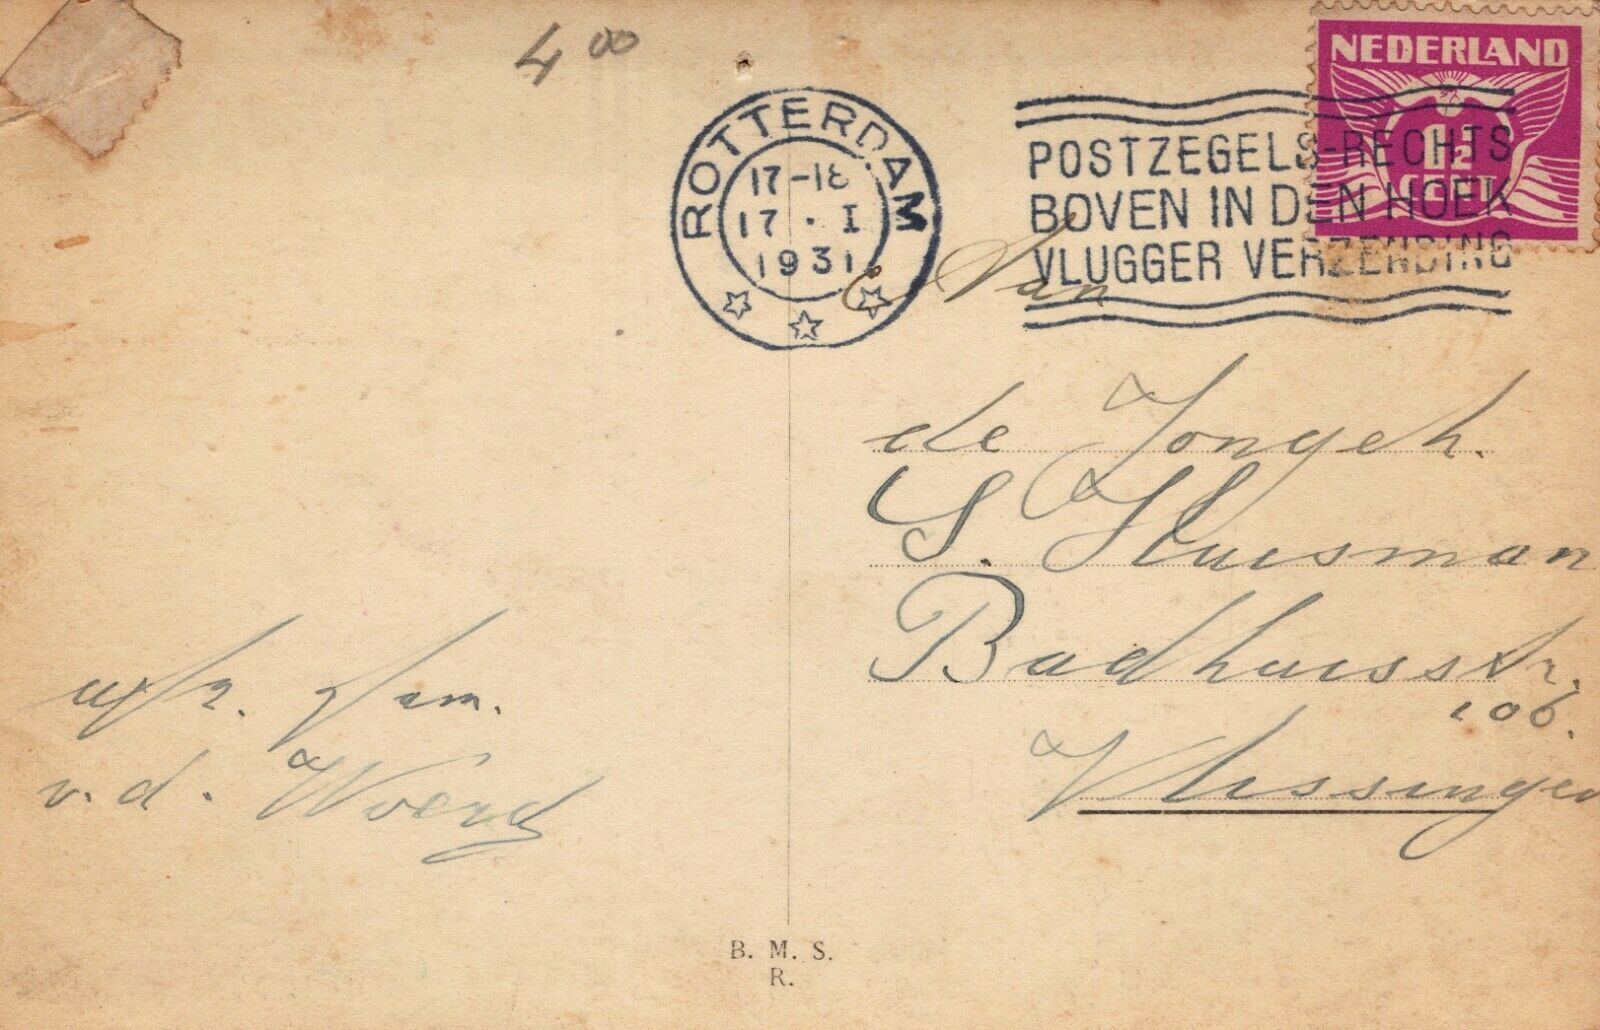 4 00
NEDERLAND
1½
CENT
ROTTERDAM
17-18
17 . I
1931
POSTZEGELS-RECHTS
BOVEN IN DEN HOEK
VLUGGER VERZENDING
Aan
de Jongeh.
S. Huisman
Badhuisstr.
106.
Vlissingen
afz. fam.
v. d. Woerd
B. M. S.
R.